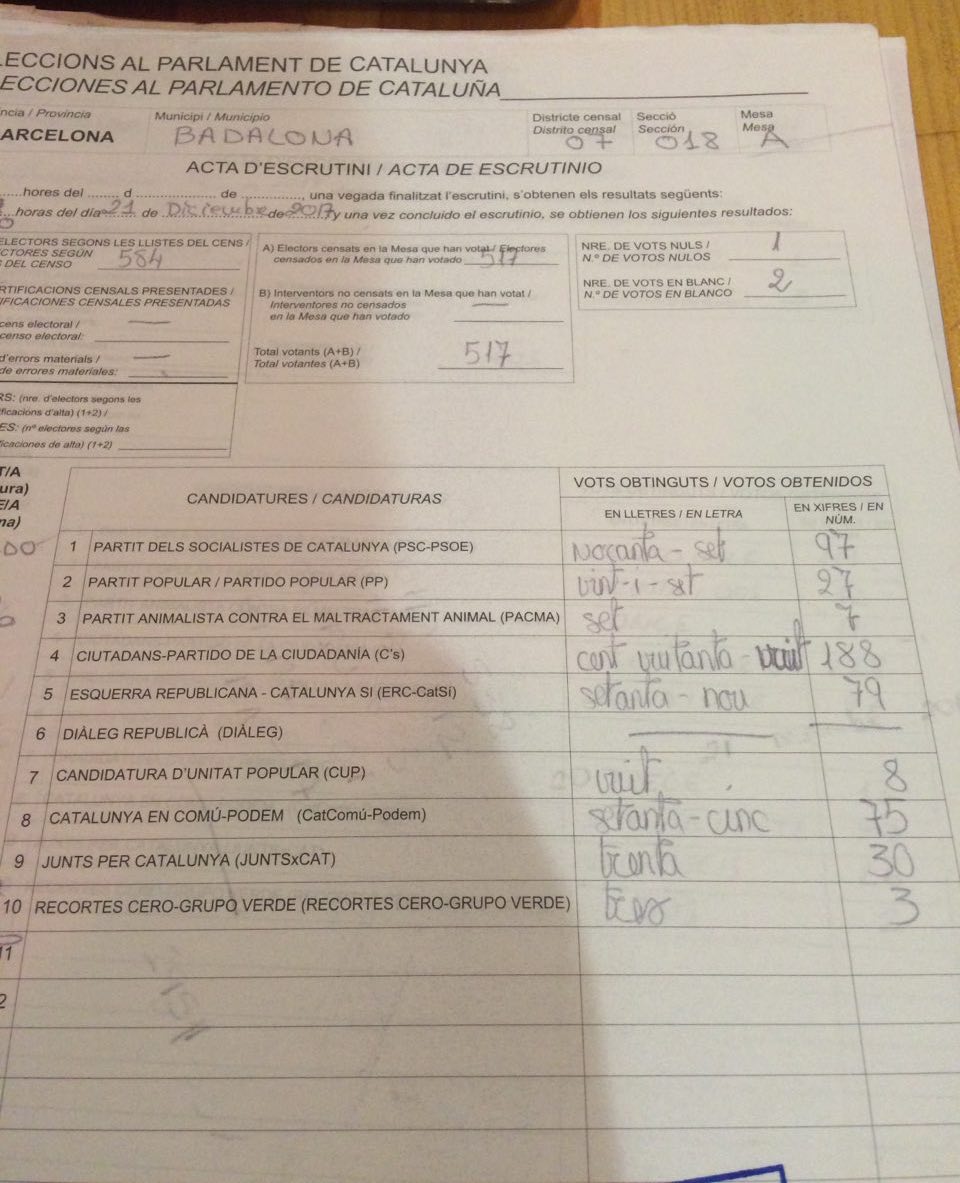 LECCIONS AL PARLAMENT DE CATALUNYA
ECCIONES AL PARLAMENTO DE CATALUÑA
ncia / Provincia
ARCELONA
Municipi / Municipio
BADALONA
Districte censal
Distrito censal
07
Secció
Sección
018
Mesa
Mesa
A
ACTA D'ESCRUTINI / ACTA DE ESCRUTINIO
hores del ........ d .................... de ............, una vegada finalitzat l'escrutini, s'obtenen els resultats següents:
horas del día 21 de Diciembre de 2017 y una vez concluido el escrutinio, se obtienen los siguientes resultados:
ELECTORS SEGONS LES LLISTES DEL CENS /
CTORES SEGÚN
DEL CENSO 584
RTIFICACIONS CENSALS PRESENTADES /
IFICACIONES CENSALES PRESENTADAS
cens electoral / —
censo electoral:
d'errors materials / —
de errores materiales:
RS: (nre. d'electors segons les
ificacions d'alta) (1+2) /
ES: (nº electores según las
ificaciones de alta) (1+2)
A) Electors censats en la Mesa que han votat / Electores
censados en la Mesa que han votado 517
B) Interventors no censats en la Mesa que han votat /
Interventores no censados —
en la Mesa que han votado
Total votants (A+B) /
Total votantes (A+B) 517
NRE. DE VOTS NULS /
N.º DE VOTOS NULOS 1
NRE. DE VOTS EN BLANC /
N.º DE VOTOS EN BLANCO 2
T/A
ura)
E/A
na)
CANDIDATURES / CANDIDATURAS
VOTS OBTINGUTS / VOTOS OBTENIDOS
EN LLETRES / EN LETRA
EN XIFRES / EN
NÚM.
DO 1 PARTIT DELS SOCIALISTES DE CATALUNYA (PSC-PSOE) Noranta - set 97
2 PARTIT POPULAR / PARTIDO POPULAR (PP) vint-i-set 27
3 PARTIT ANIMALISTA CONTRA EL MALTRACTAMENT ANIMAL (PACMA) set 7
4 CIUTADANS-PARTIDO DE LA CIUDADANÍA (C's) cent vuitanta - vuit 188
5 ESQUERRA REPUBLICANA - CATALUNYA SI (ERC-CatSí) setanta - nou 79
6 DIÀLEG REPUBLICÀ (DIÀLEG) — —
7 CANDIDATURA D'UNITAT POPULAR (CUP) vuit 8
8 CATALUNYA EN COMÚ-PODEM (CatComú-Podem) setanta-cinc 75
9 JUNTS PER CATALUNYA (JUNTSxCAT) trenta 30
10 RECORTES CERO-GRUPO VERDE (RECORTES CERO-GRUPO VERDE) tres 3
11
2